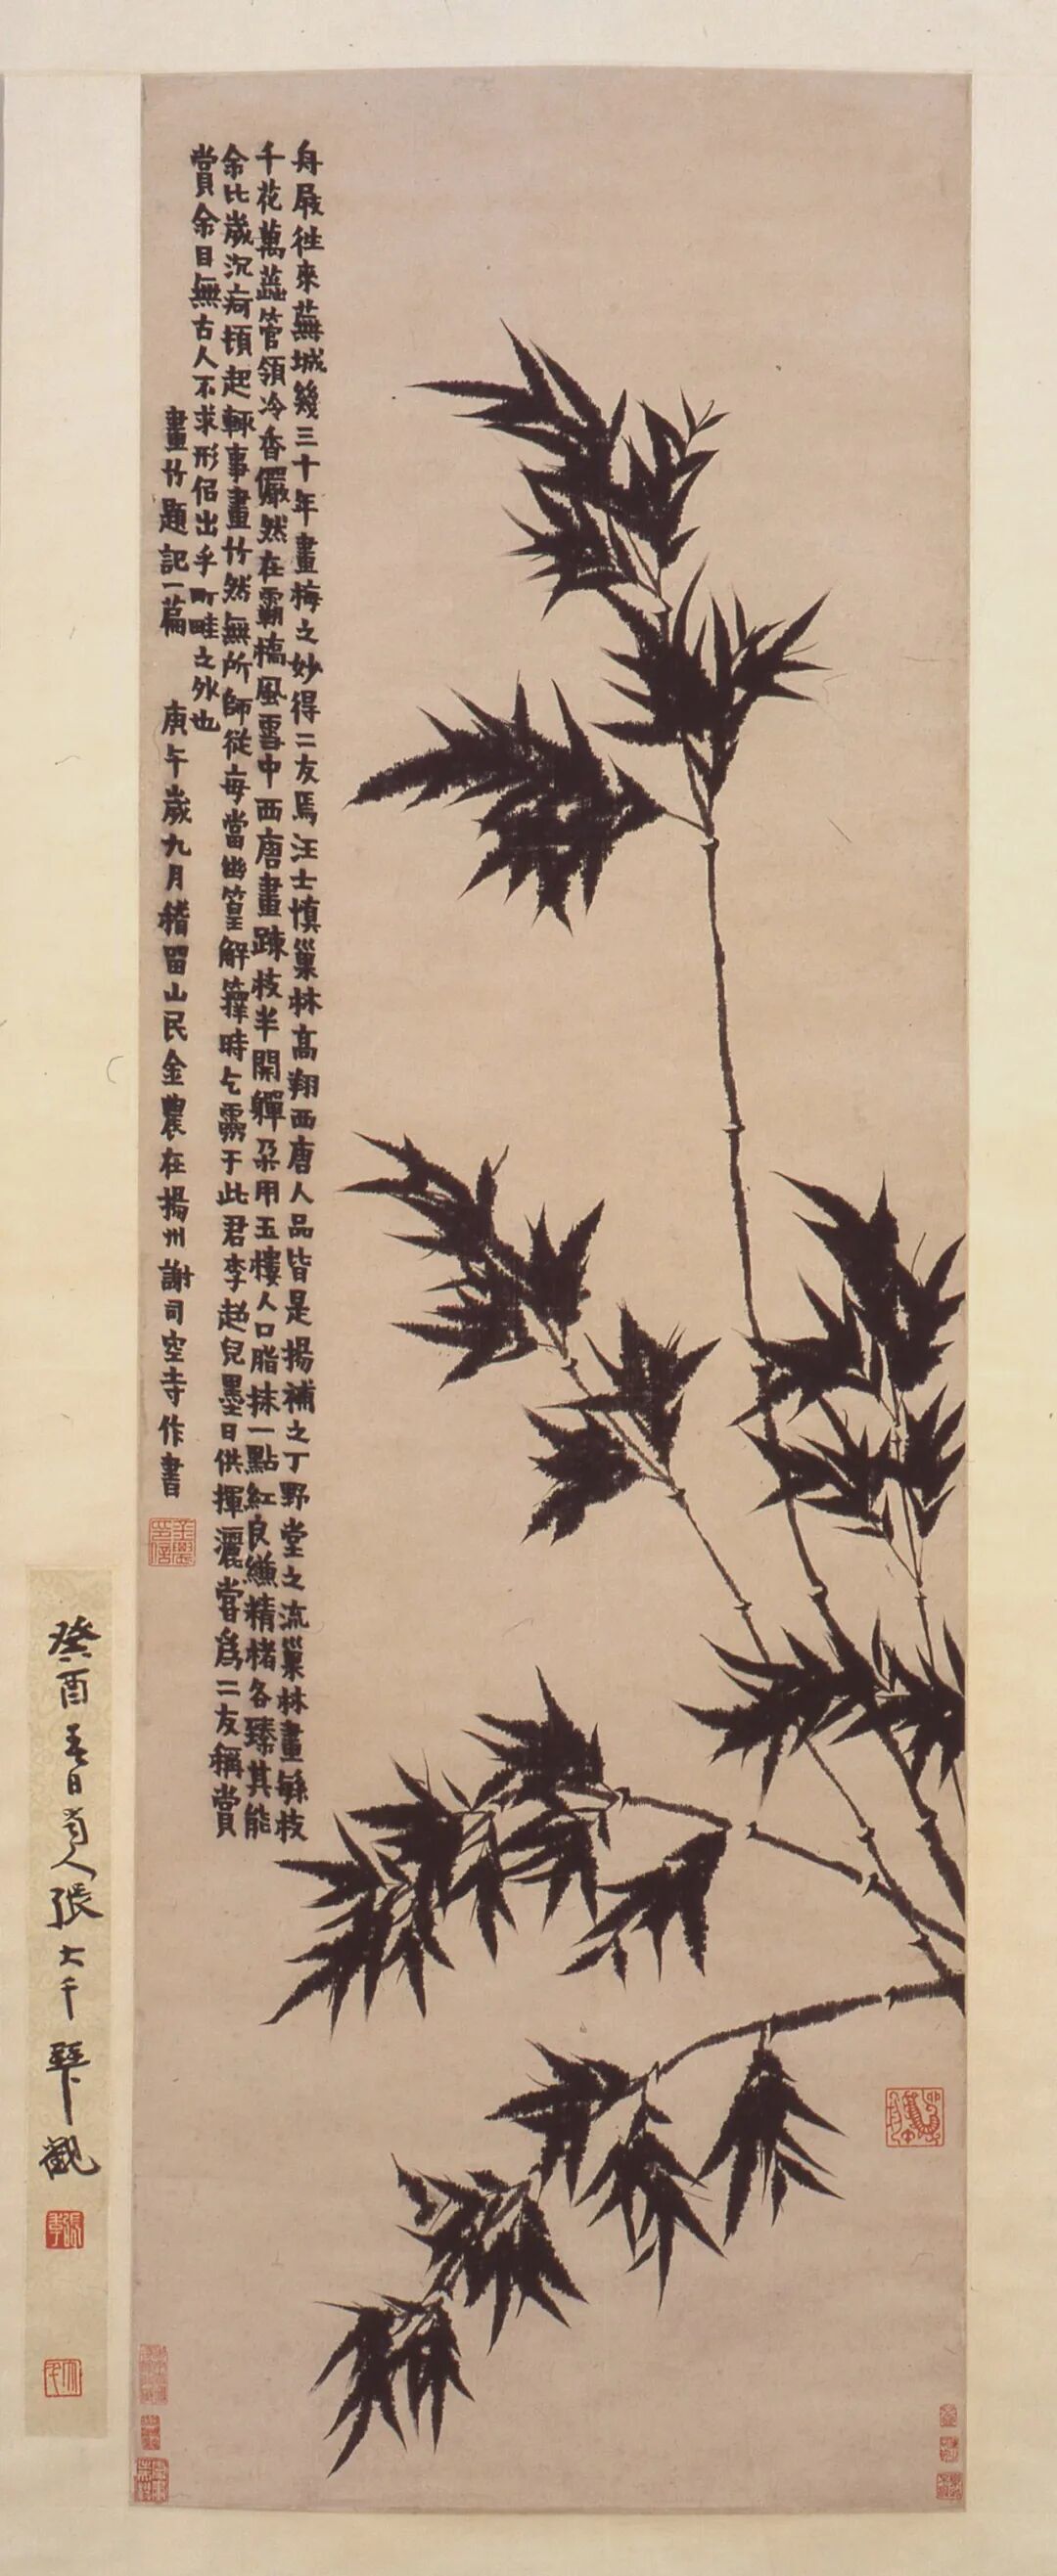 舟屐往來蕪城幾三十年畫梅之妙得二友焉汪士慎巢林高翔西唐人品皆是揚補之丁野堂之流巢林畫䋣枝
千花萬蕊管領冷香儼然在霸橋風雪中西唐畫疎枝半開軃朶用玉樓人口脂抹一點紅良縑精楮各臻其能
余比歲沉疴頓起輒事畫竹然無所師從每當幽篁解籜時乞靈于此君李趙兒墨日供揮灑嘗爲二友稱賞
賞余目無古人不求形侣出乎町畦之外也
畫竹題記一萹 庚午歲九月稽留山民金農在揚州謝司空寺作書
金農印信
癸酉春日蜀人張大千拜觀